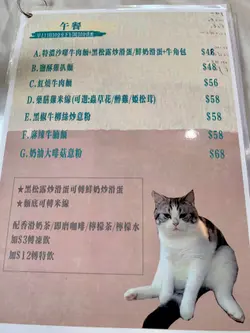 午餐
A. 特濃沙嗲牛肉麵+黑松露炒滑蛋/鮮奶滑蛋+牛角包 $48
B. 溏酥雞扒麵 $48
C. 紅燒牛肉麵 $56
D. 藥膳雞米線(可選:蟲草花/醉雞/姬松茸) $58
E. 黑椒牛柳絲炒意粉 $58
F. 麻辣牛腩麵 $58
G. 奶油大啡菇意粉 $68
★黑松露炒滑蛋可轉鮮奶炒滑蛋
★麵底可轉米線
配香滑奶茶/即磨咖啡/檸檬茶/檸檬水
加$3轉凍飲
加$12轉特飲